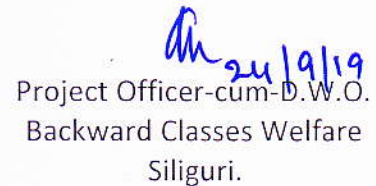 24/9/19
Project Officer-cum-D.W.O.
Backward Classes Welfare
Siliguri.